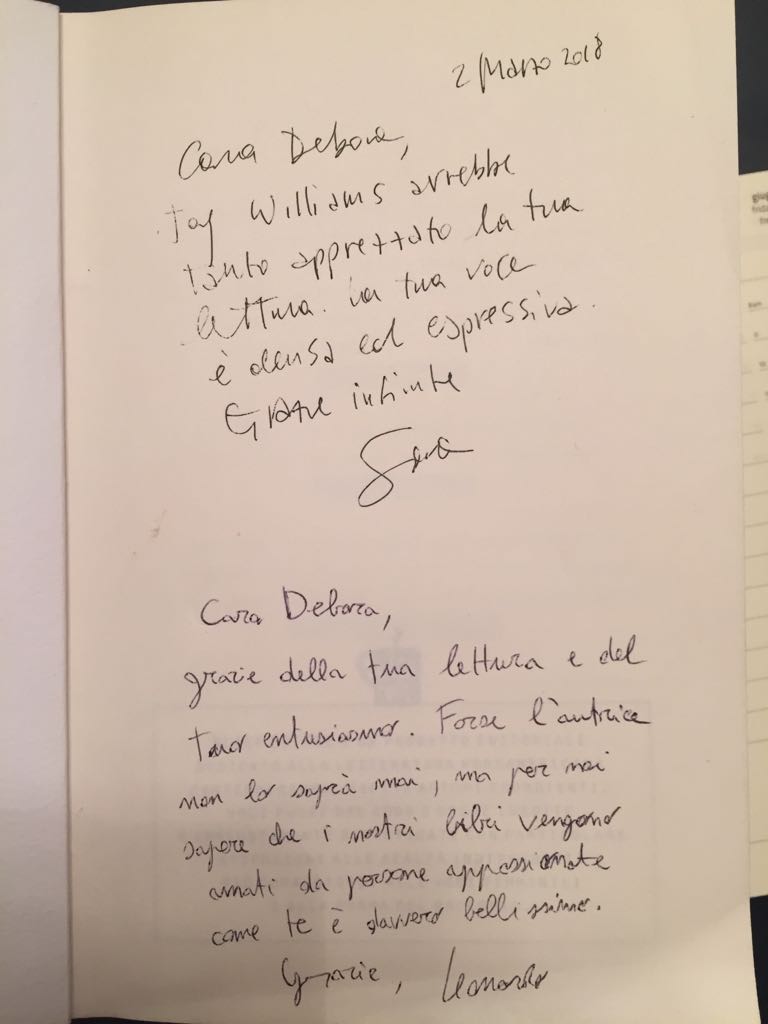 2 Marzo 2018
Cara Debora,
Joy Williams avrebbe
tanto apprezzato la tua
lettura. La tua voce
è densa ed espressiva.
Grazie infinite
Sara
Cara Debora,
grazie della tua lettura e del
tuo entusiasmo. Forse l'autrice
non lo saprà mai, ma per noi
sapere che i nostri libri vengono
amati da persone appassionate
come te è davvero bellissimo.
Grazie, Leonardo